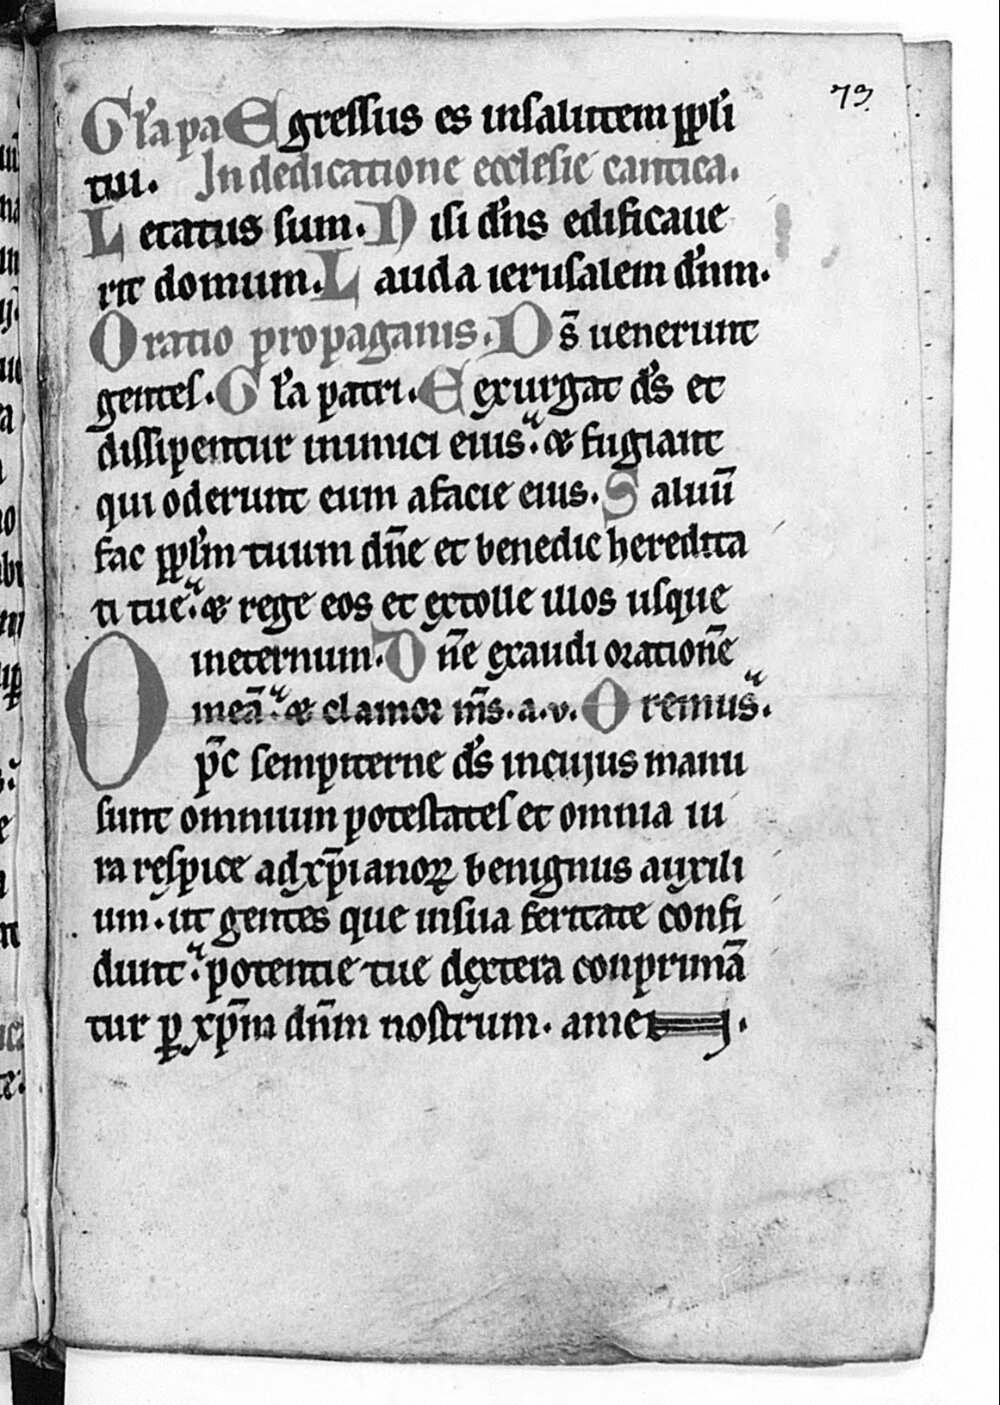 73
Gl'a pa Egressus es insalutem ppl'i
tui. In dedicatione ecclesie cantica.
Letatus sum. Nisi dn̄s edificaue
rit domum. Lauda ierusalem dn̄m.
Oratio pro paganis. Ds̄ uenerunt
gentes. Gl'a patri. Eexurgat ds̄ et
dissipentur inimici eius. & fugiant
qui oderunt eum afacie eius. Saluū
fac ppl'm tuum dn̄e et benedic heredita
ti tue. & rege eos et extolle illos usque
ineternum. Dn̄e exaudi orationē
meā. & clamor ms̄. a. v. Oremus.
Op̄c sempiterne ds̄ incujus manu
sunt omnium potestates et omnia iu
ra respice adxp̄ianoꝝ benignus auxili
um. ut gentes que insua feritate confi
dunt. potentie tue dextera conprimā
tur ꝑ xp̄m dn̄m nostrum. amen.